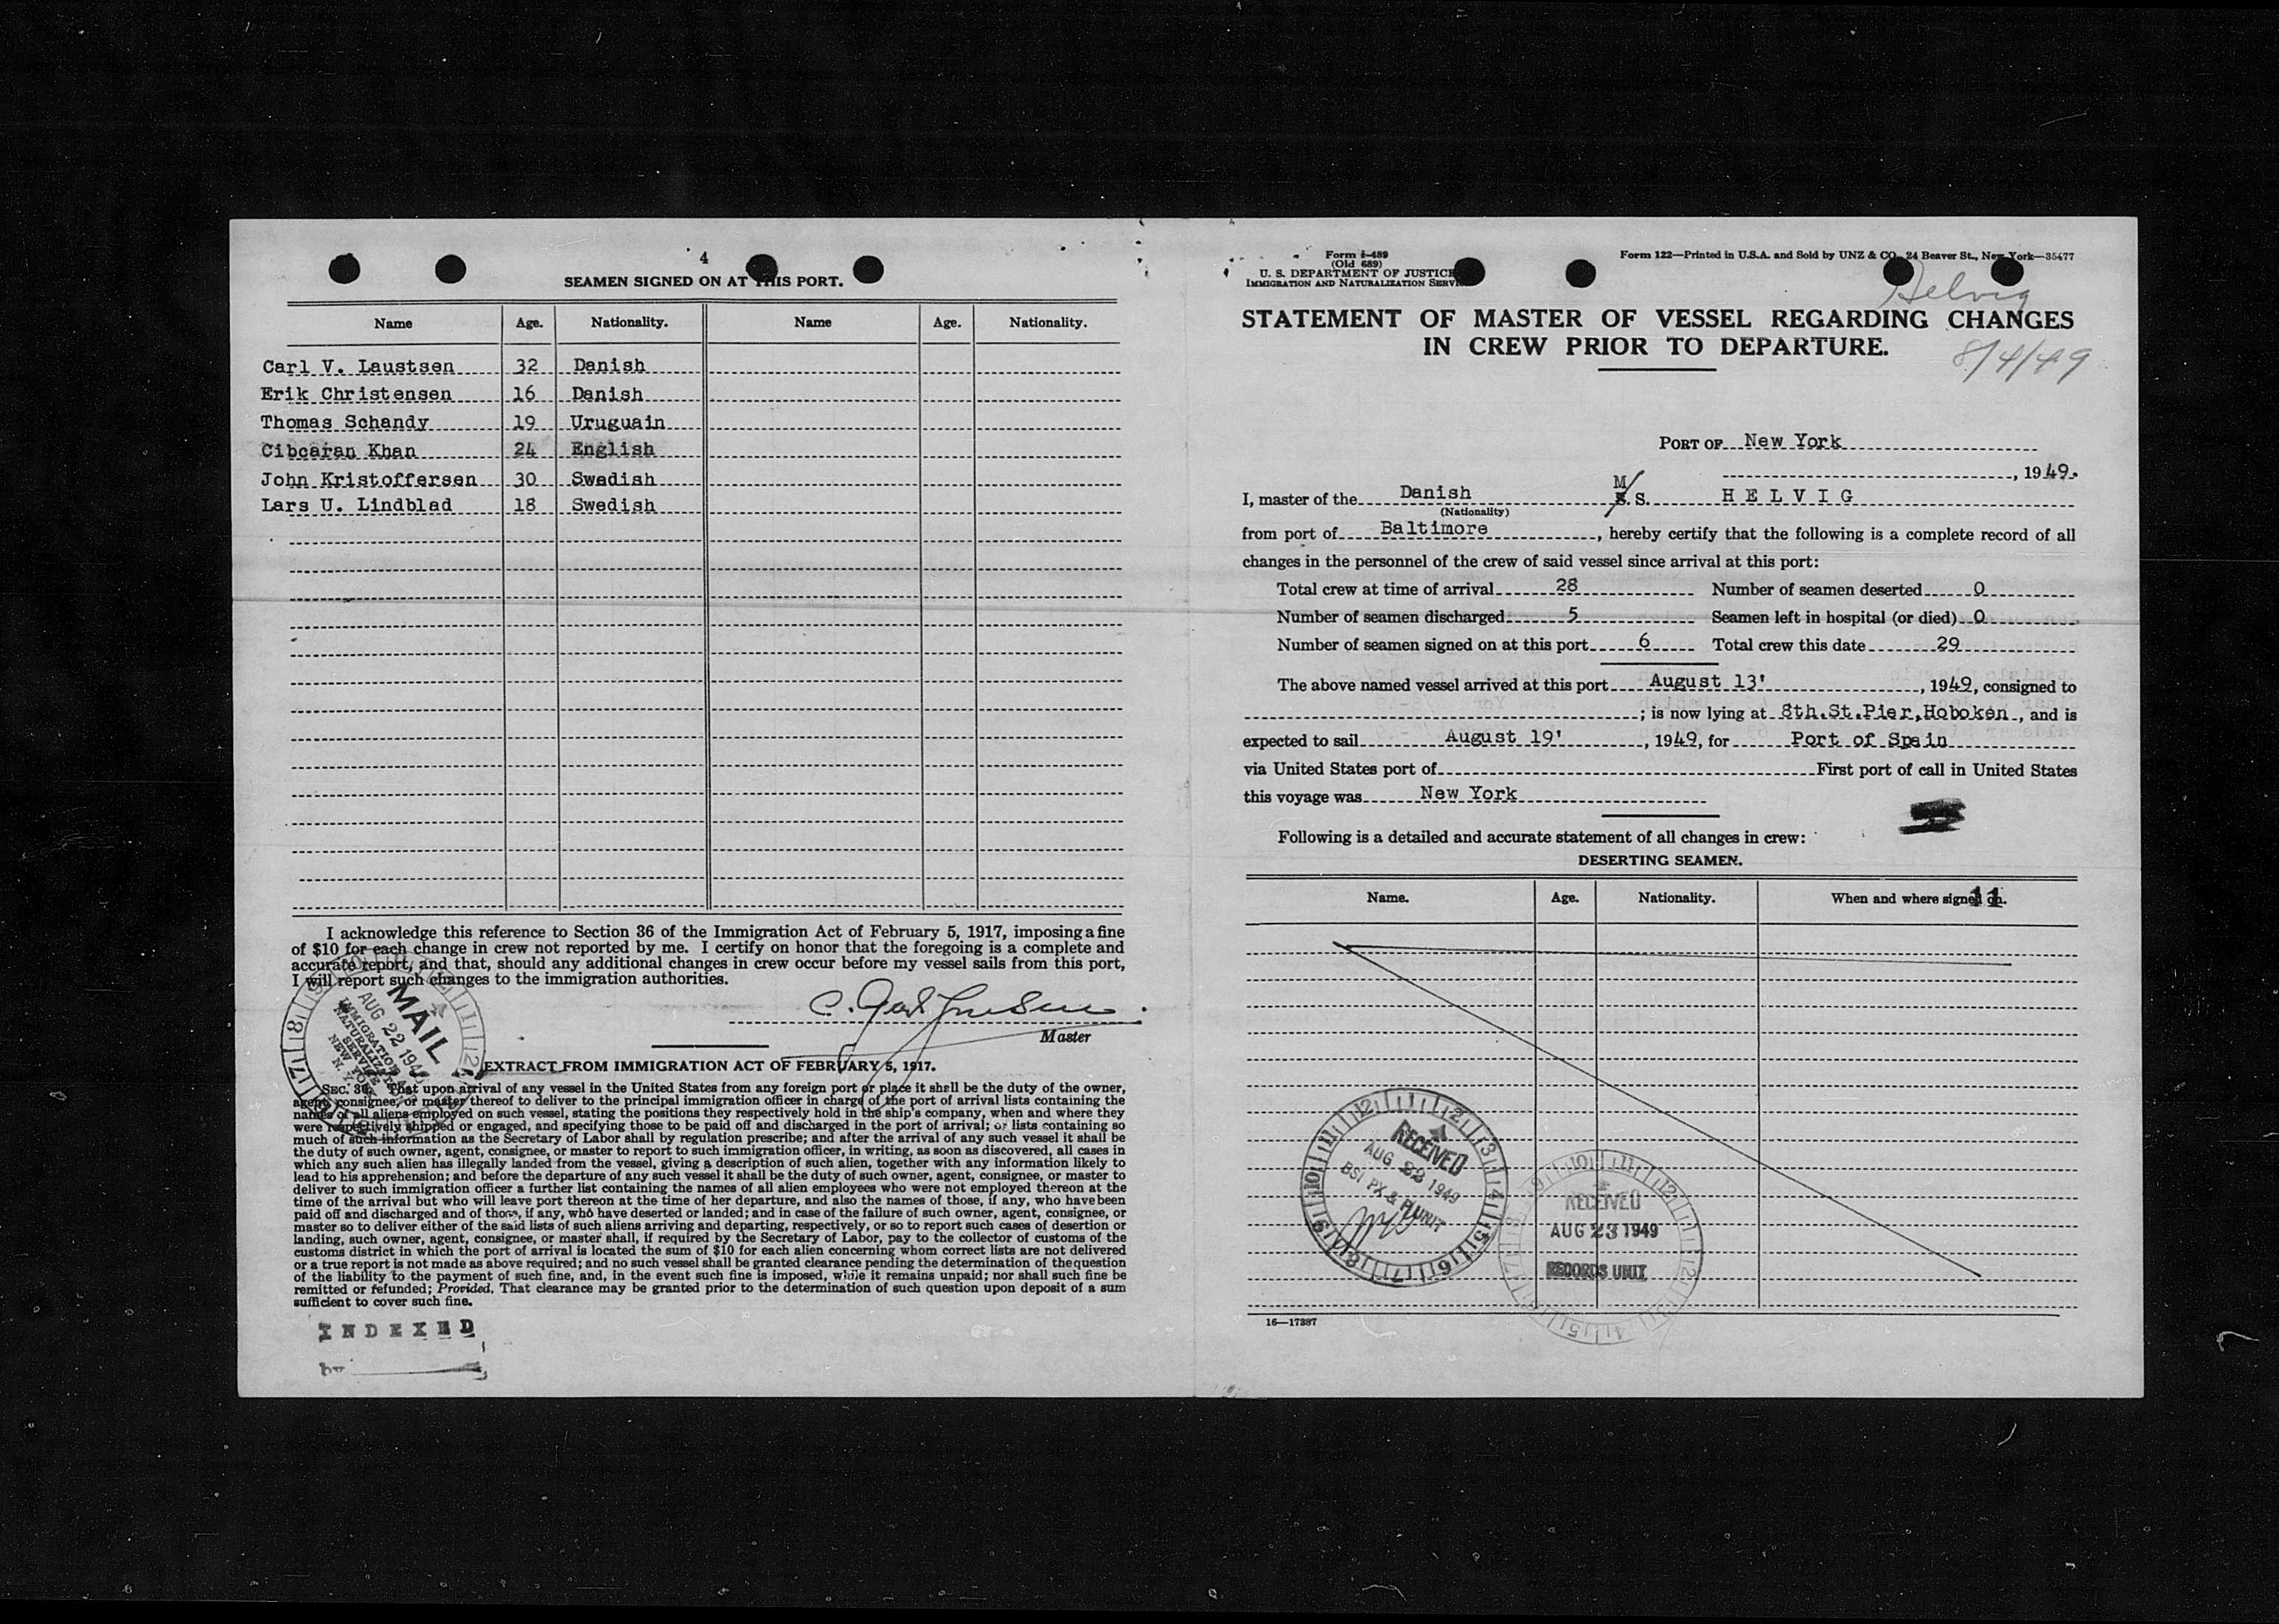 4
SEAMEN SIGNED ON AT THIS PORT.
Name Age. Nationality. Name Age. Nationality.
Carl V. Laustsen 32 Danish
Erik Christensen 16 Danish
Thomas Schandy 19 Uruguain
Cibcaran Khan 24 English
John Kristoffersen 30 Swedish
Lars U. Lindblad 18 Swedish
I acknowledge this reference to Section 36 of the Immigration Act of February 5, 1917, imposing a fine
of $10 for each change in crew not reported by me. I certify on honor that the foregoing is a complete and
accurate report, and that, should any additional changes in crew occur before my vessel sails from this port,
I will report such changes to the immigration authorities.
Master
MAIL
AUG 22 194
IMMIGRATION
NATURALIZATION
SERVICE
NEW YORK
N. Y.
EXTRACT FROM IMMIGRATION ACT OF FEBRUARY 5, 1917.
SEC. 36. That upon arrival of any vessel in the United States from any foreign port or place it shall be the duty of the owner,
agent, consignee, or master thereof to deliver to the principal immigration officer in charge of the port of arrival lists containing the
names of all aliens employed on such vessel, stating the positions they respectively hold in the ship's company, when and where they
were respectively shipped or engaged, and specifying those to be paid off and discharged in the port of arrival; or lists containing so
much of such information as the Secretary of Labor shall by regulation prescribe; and after the arrival of any such vessel it shall be
the duty of such owner, agent, consignee, or master to report to such immigration officer, in writing, as soon as discovered, all cases in
which any such alien has illegally landed from the vessel, giving a description of such alien, together with any information likely to
lead to his apprehension; and before the departure of any such vessel it shall be the duty of such owner, agent, consignee, or master to
deliver to such immigration officer a further list containing the names of all alien employees who were not employed thereon at the
time of the arrival but who will leave port thereon at the time of her departure, and also the names of those, if any, who have been
paid off and discharged and of those, if any, who have deserted or landed; and in case of the failure of such owner, agent, consignee, or
master so to deliver either of the said lists of such aliens arriving and departing, respectively, or so to report such cases of desertion or
landing, such owner, agent, consignee, or master shall, if required by the Secretary of Labor, pay to the collector of customs of the
customs district in which the port of arrival is located the sum of $10 for each alien concerning whom correct lists are not delivered
or a true report is not made as above required; and no such vessel shall be granted clearance pending the determination of the question
of the liability to the payment of such fine, and, in the event such fine is imposed, while it remains unpaid; nor shall such fine be
remitted or refunded; Provided, That clearance may be granted prior to the determination of such question upon deposit of a sum
sufficient to cover such fine.
INDEXED
by
Form I-489
(Old 689)
U. S. DEPARTMENT OF JUSTICE
IMMIGRATION AND NATURALIZATION SERVICE
Form 122—Printed in U.S.A. and Sold by UNZ & CO., 24 Beaver St., New York—35477
Helvig
STATEMENT OF MASTER OF VESSEL REGARDING CHANGES
IN CREW PRIOR TO DEPARTURE.
8/4/49
PORT OF New York
, 1949.
I, master of the Danish M/S. S. HELVIG
(Nationality)
from port of Baltimore, hereby certify that the following is a complete record of all
changes in the personnel of the crew of said vessel since arrival at this port:
Total crew at time of arrival 28 Number of seamen deserted 0
Number of seamen discharged 5 Seamen left in hospital (or died) 0
Number of seamen signed on at this port 6 Total crew this date 29
The above named vessel arrived at this port August 13', 1949, consigned to
; is now lying at 8th.St.Pier,Hoboken, and is
expected to sail August 19', 1949, for Port of Spain
via United States port of First port of call in United States
this voyage was New York
Following is a detailed and accurate statement of all changes in crew:
DESERTING SEAMEN.
Name. Age. Nationality. When and where signed on.
11
RECEIVED
AUG 22 1949
BSI PX & FL UNIT
RECEIVED
AUG 23 1949
RECORDS UNIT
16—17387